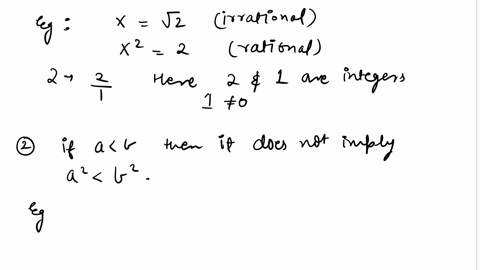 Eg : x = √2 (irrational)
x² = 2 (rational)
2 → 2/1 Here 2 & 1 are integers
1 ≠ 0
② if a < b then it does not imply
a² < b².
Eg